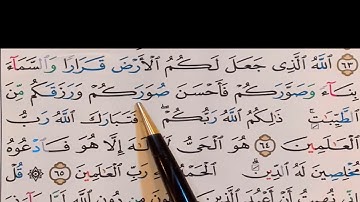 ٦٣ ٱللَّهُ ٱلَّذِى جَعَلَ لَكُمُ ٱلْأَرْضَ قَرَارًا وَٱلسَّمَآءَ
بِنَآءً وَصَوَّرَكُمْ فَأَحْسَنَ صُوَرَكُمْ وَرَزَقَكُم مِّنَ
ٱلطَّيِّبَٰتِ ذَٰلِكُمُ ٱللَّهُ رَبُّكُمْ فَتَبَارَكَ ٱللَّهُ رَبُّ
ٱلْعَٰلَمِينَ ٦٤ هُوَ ٱلْحَىُّ إِلَٰهَ إِلَّا هُوَ فَٱدْعُوهُ
مُخْلِصِينَ لَهُ ٱلدِّينَ ٱلْحَمْدُ ٱلْعَٰلَمِينَ ٦٥ قُلْ
نُهِيتُ أَنْ أَعْبُدَ ٱلَّذِينَ مِن دُونِ ٱللَّهِ